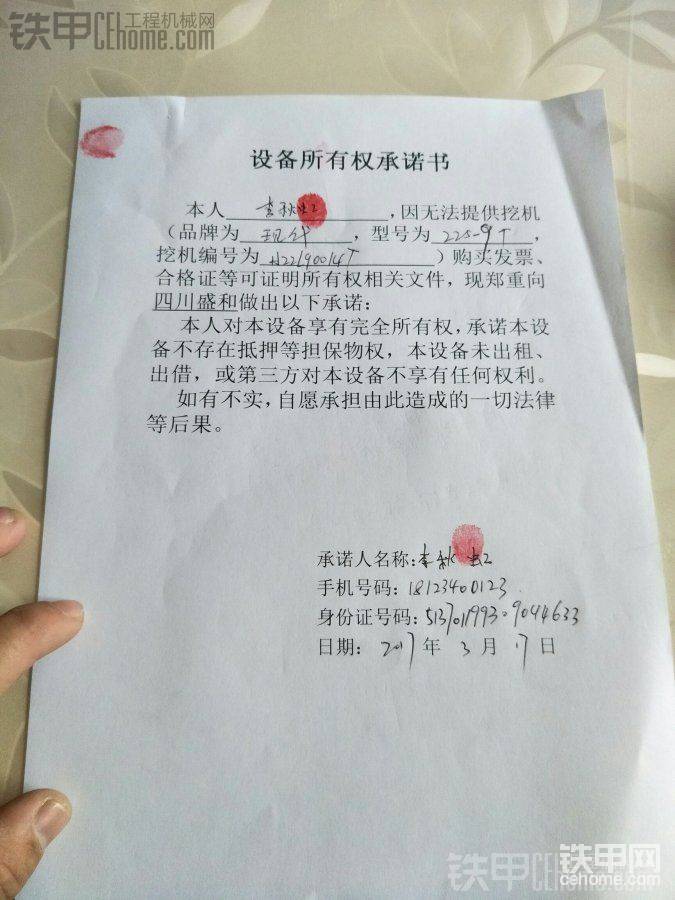 铁甲CEhome.com工程机械网
设备所有权承诺书
本人李秋虹,因无法提供挖机
(品牌为现代,型号为225-9T,
挖机编号为N22190014T)购买发票、
合格证等可证明所有权相关文件,现郑重向
四川盛和做出以下承诺:
本人对本设备享有完全所有权,承诺本设
备不存在抵押等担保物权,本设备未出租、
出借,或第三方对本设备不享有任何权利。
如有不实,自愿承担由此造成的一切法律
等后果。
承诺人名称:李秋虹
手机号码:18123400123
身份证号码:513701199309044633
日期:2017年3月17日
铁甲CEhome.com
铁甲网
cehome.com